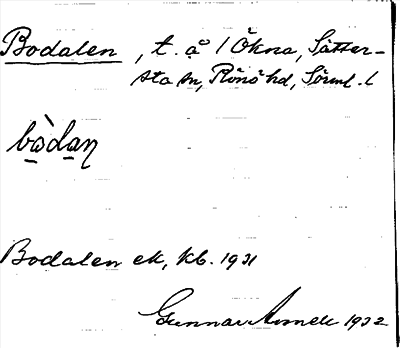 Bodalen, t. å 1 Ökna, Sätter-
sta sn, Rönö hd, Sörml. l
bò̱da̱ṇ
Bodalen ek, kb. 1931
Gunnar 1932